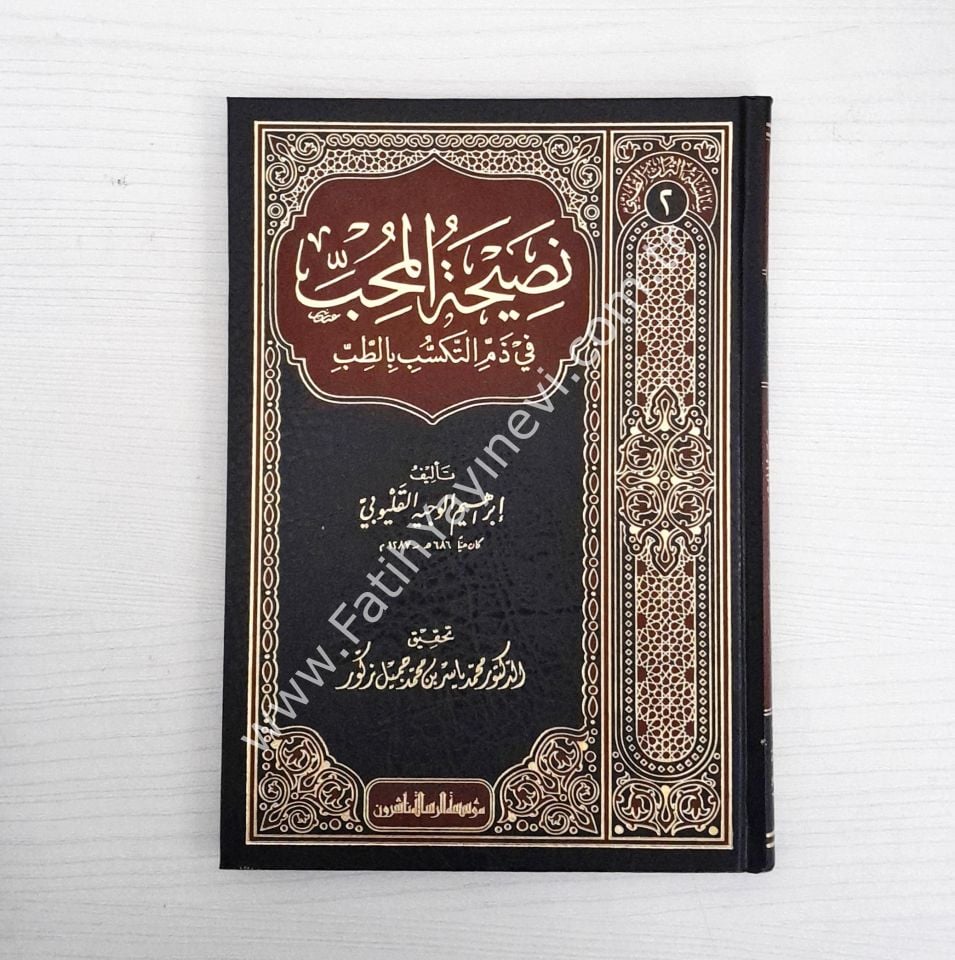 نَصِيْحَةُ المُحِبِّ
فِيْ ذَمِّ التَّكَسُّبِ بِالطِّبِّ
تَأْلِيْفُ
إبراهيم الوجيه القليوبي
كان حيًّا ٦٨٦ هـ ـ ١٢٨٧ م
تحقيق
الدكتور محمد ياسر بن محمد جميل زكور
مؤسسة الرسالة ناشرون
٢
www.FatihYayinevi.com.tr